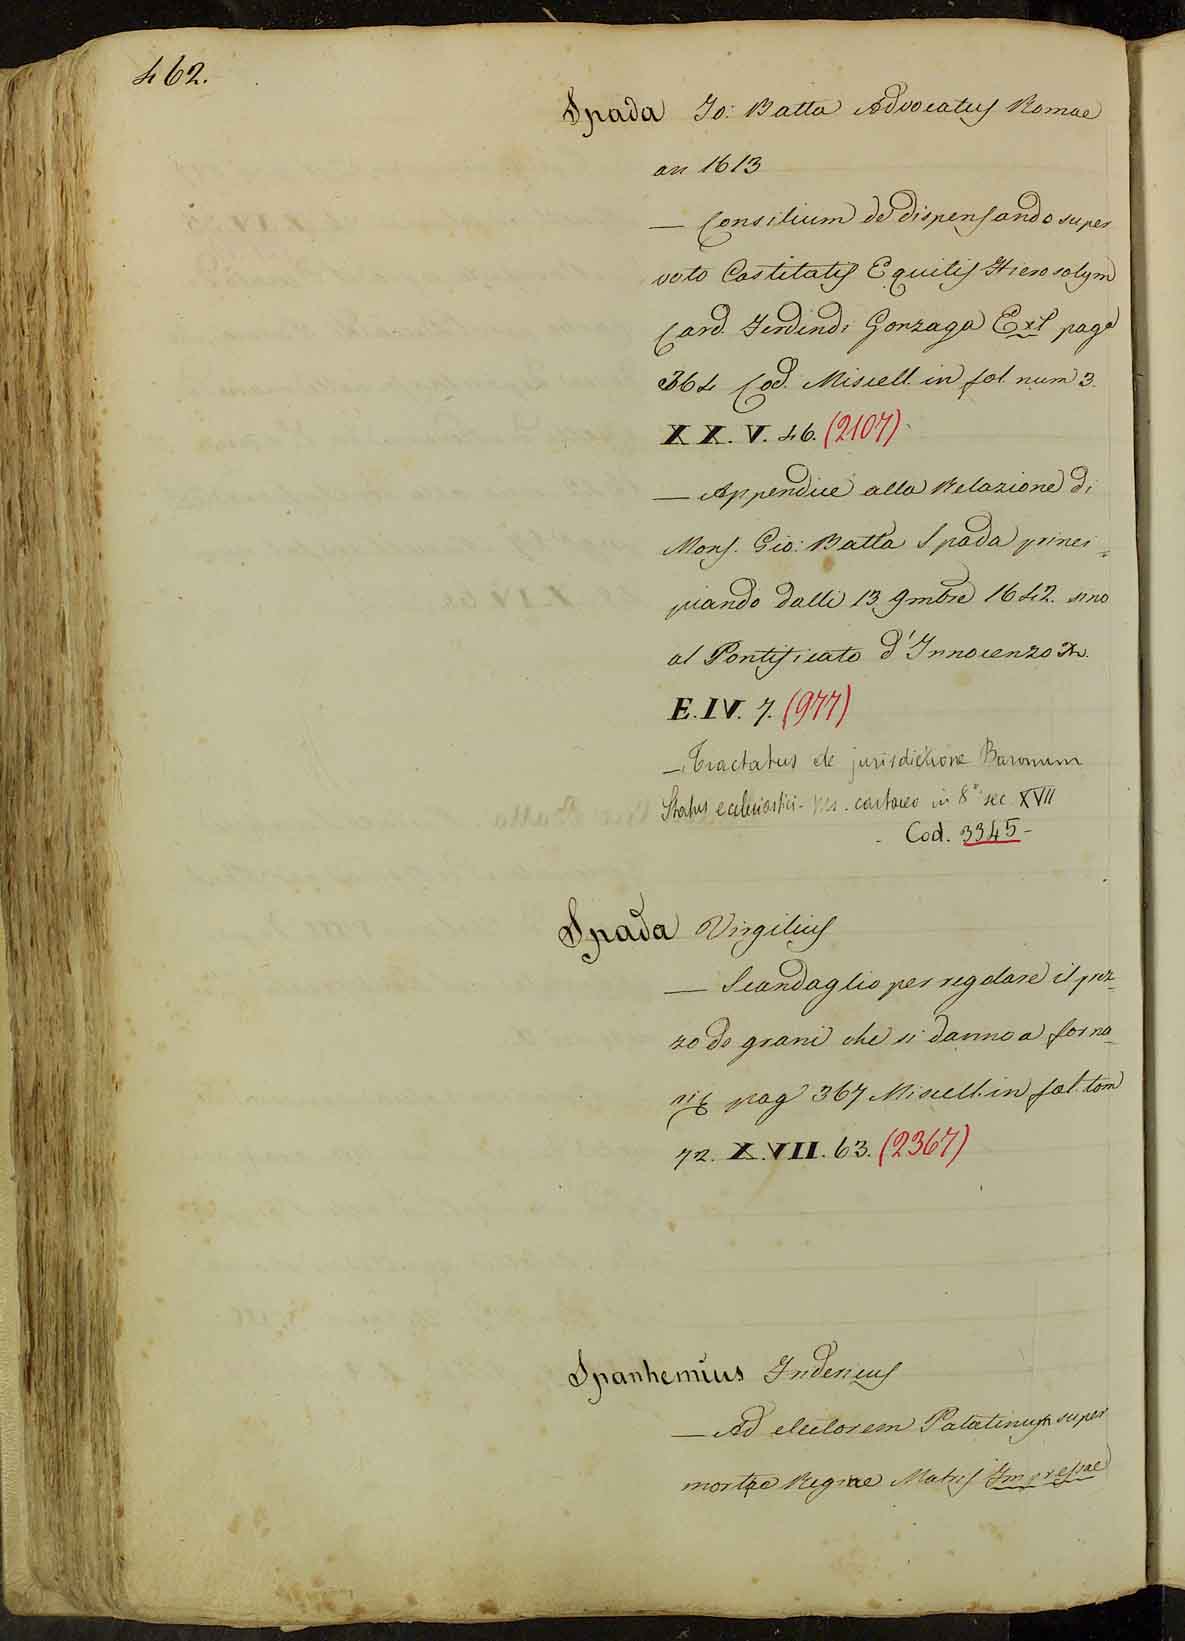 462.
Spada Io: Batta Advocatus Romae
an 1613
— Consilium de dispensando super
voto Castitatis Equitis Hierosolym
Card. Ferdindi Gonzaga Ext paga
364 Cod. Miscell. in fol. num 3.
XX. V. 46. (2107)
— Appendice alla Relazione di
Mons. Gio: Batta Spada princi=
piando dalli 13 9mbre 1642. sino
al Pontificato d'Innocenzo X.
E. IV. 7. (977)
— Tractatus de jurisdictione Baronum
Status ecclesiastici - Ms. cartaceo in 8° sec. XVII
Cod. 3345 -
Spada Virgilius
— Scandaglio per regolare il prez=
zo de grani che si danno a forna=
ri pag 367 Miscell. in fol. tom
72. X. VII. 63. (2367)
Spanhemius
— Ad electorem Palatinum super
morte Regiae Matris Impressae